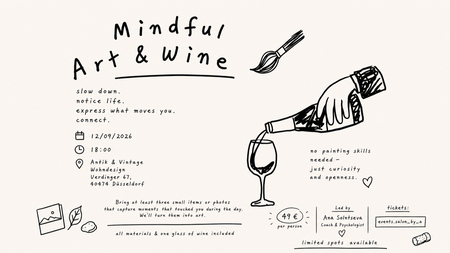 Mindful
Art & Wine
slow down.
notice life.
express what moves you.
connect.
12/09/2026
18:00
Antik & Vintage
Wohndesign
Verdinger 67,
40474 Düsseldorf
no painting skills
needed –
just curiosity
and openness.
Bring at least three small items or photos
that capture moments that touched you during the day.
We'll turn them into art.
all materials & one glass of wine included
49 €
per person
Led by
Ana Solntseva
Coach & Psychologist
tickets:
events.salon_by_a
limited spots available